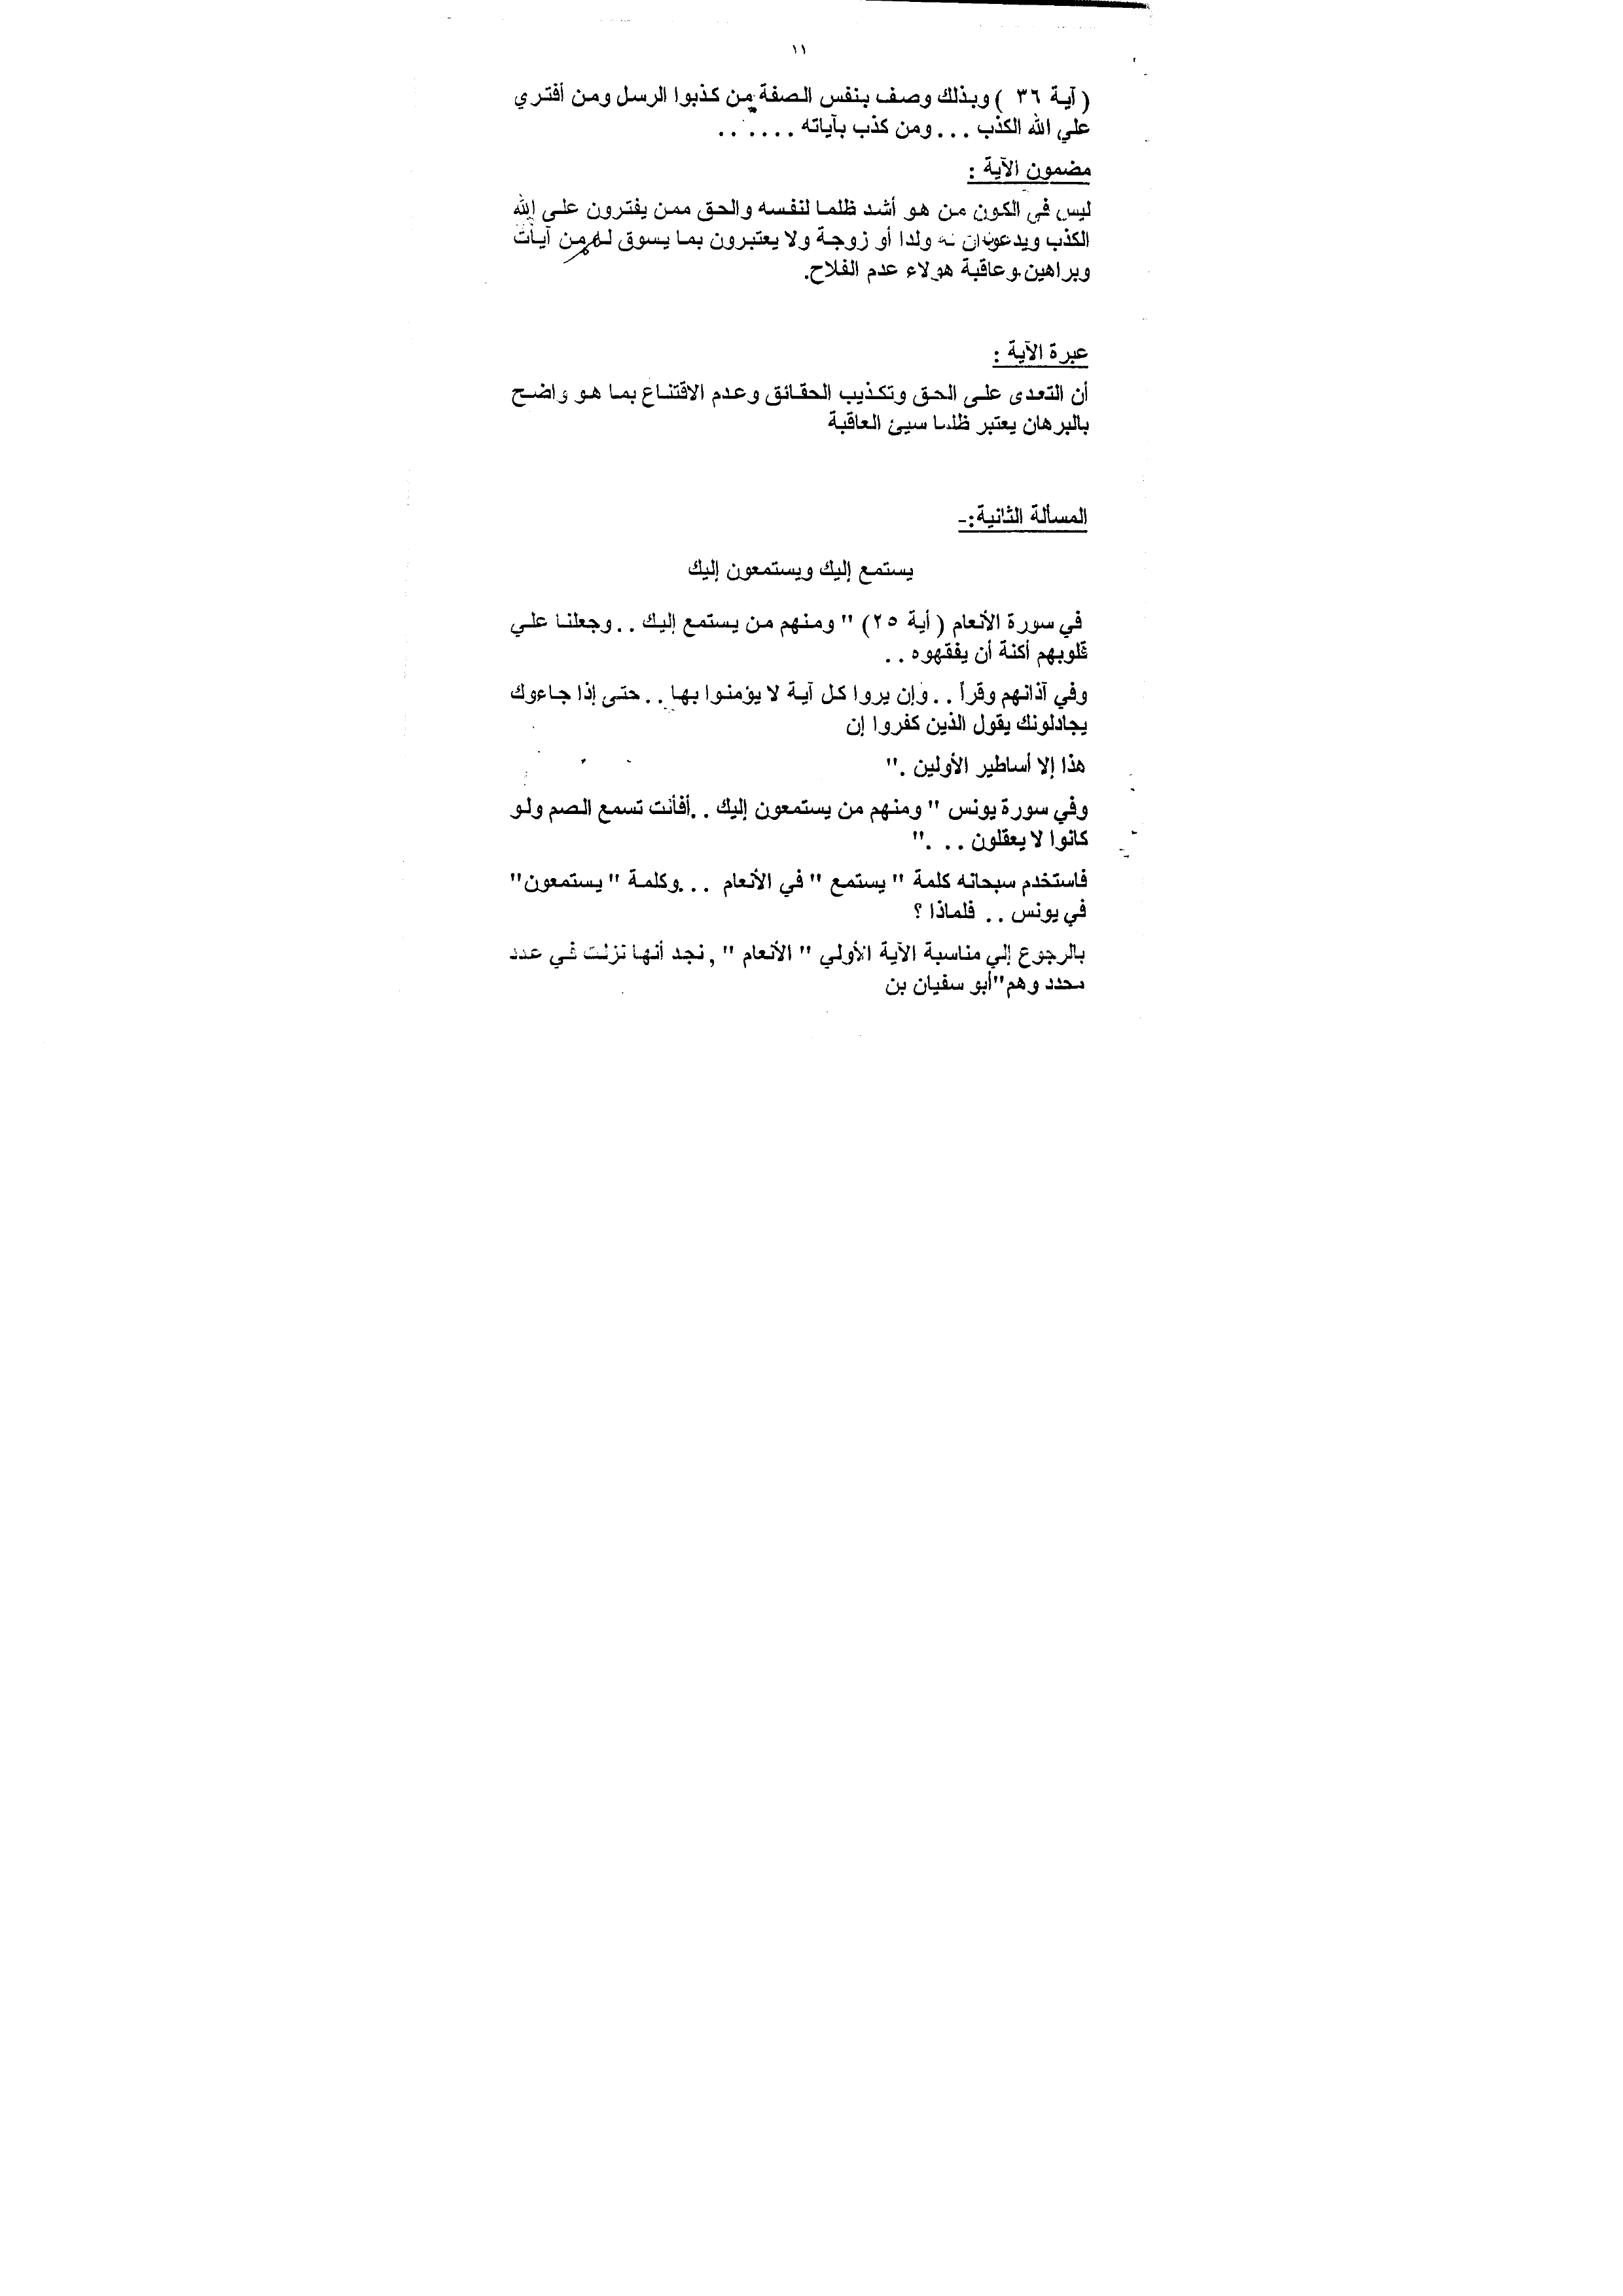 ١١
( آية ٣٦ ) وبذلك وصف بنفس الصفة من كذبوا الرسل ومن أفتري
علي الله الكذب ... ومن كذب بآياته ......
مضمون الآية :
ليس في الكون من هو أشد ظلما لنفسه والحق ممن يفترون على الله
الكذب ويدعون ان له ولدا أو زوجة ولا يعتبرون بما يسوق لهم من آيات
وبراهين.وعاقبة هولاء عدم الفلاح.
عبرة الآية :
أن التعدى على الحق وتكذيب الحقائق وعدم الاقتناع بما هو واضح
بالبرهان يعتبر ظلما سيئ العاقبة
المسألة الثانية:-
يستمع إليك ويستمعون إليك
في سورة الأنعام ( أية ٢٥) " ومنهم من يستمع إليك ..وجعلنا علي
قلوبهم أكنة أن يفقهوه ..
وفي آذانهم وقرأ ..وإن يروا كل آية لا يؤمنوا بها ..حتى إذا جاءوك
يجادلونك يقول الذين كفروا إن
هذا إلا أساطير الأولين ."
وفي سورة يونس " ومنهم من يستمعون إليك ..أفأنت تسمع الصم ولو
كانوا لا يعقلون ..."
فاستخدم سبحانه كلمة " يستمع " في الأنعام ...وكلمة " يستمعون"
في يونس .. فلماذا ؟
بالرجوع إلي مناسبة الآية الأولي " الأنعام " , نجد أنها نزلت في عدد
محدد وهم"أبو سفيان بن